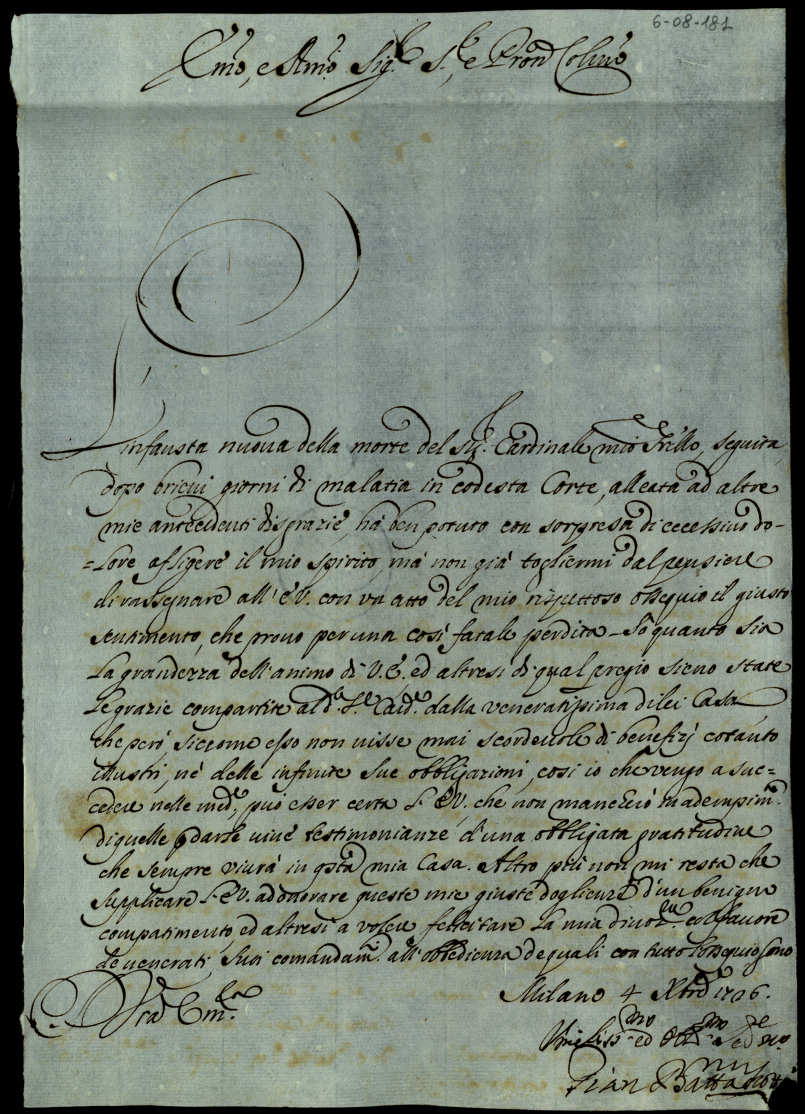 6-08-181
Emo, e Rmo Sigr. S.e, e Pron Colmo
L'infausta nuova della morte del Sigr. Cardinale mio Frello, seguita,
dopo brieui giorni di malatia in codesta Corte, alleata ad altre
mie antecedenti disgrazie, hà ben potuto con sorpresa di eccessiuo do-
=lore afligere il mio spirito, mà non già togliermi dal pensiere
di rassegnare all'E.V. con un atto del mio rispettoso ossequio il giusto
sentimento, che prouo per una così fatale perdita - Sò quanto sia
la grandezza dell'animo di V.E. ed altresi di qual pregio sieno state
le grazie compartite al d.o S.e Card.e dalla veneratissima di lei Casa
che però siccome esso non uisse mai scordeuole di benefizj cotanto
illustri, nè delle infinite sue obbligazioni, così io che vengo a suc=
cedere nelle med.e, può esser certa l'E.V. che non mancherò in adempim.to
di quelle p darle uiue testimonianze d'una obbligata gratitudine
che sempre viurà in qsta mia Casa. Altro più non mi resta che
supplicare l'E.V. ad onorare queste mie giuste doglienze d'un benigno
compatimento, ed altresi a voler felicitare la mia diuoz.ne col fauore
de venerati Suoi comandam.ti all'obbedienza de quali con tutto l'ossequio sono
D. Vra Em.za
Milano 4 Xbre 1726.
Umiliss.mo ed Obb.mo
Gian Batta